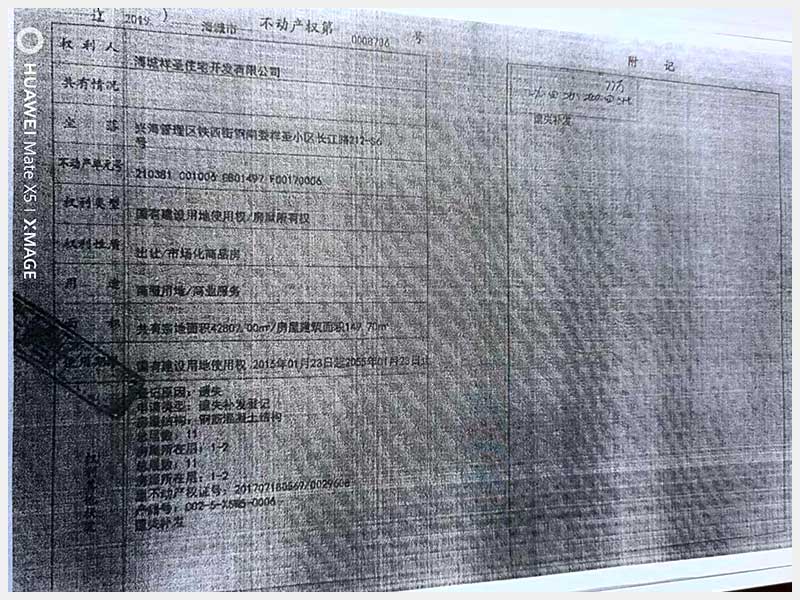 辽 2019
海城市 不动产权第 0008736 号
附 记
权 利 人
海城祥圣住宅开发有限公司
共有情况
坐 落
兴海管理区铁西街
祥圣小区长江路212-S6
号
遗失补发
不动产单元号
210381 001006 GB01497 F00170006
权利类型
国有建设用地使用权/房屋所有权
权利性质
出让/市场化商品房
用 途
商服用地/商业服务
面 积
共有宗地面积42807.00㎡/房屋建筑面积147.70㎡
国有建设用地使用权 2015年01月23日起2055年01月23日止
登记原因：遗失
申请类型：遗失补发登记
房屋结构：钢筋混凝土结构
总层数：11
房屋所在层：1-2
总层数：11
房屋所在层：1-2
原不动产权证号：20170718056
产籍号：002-5-
遗失补发
HUAWEI Mate X5 | XMAGE